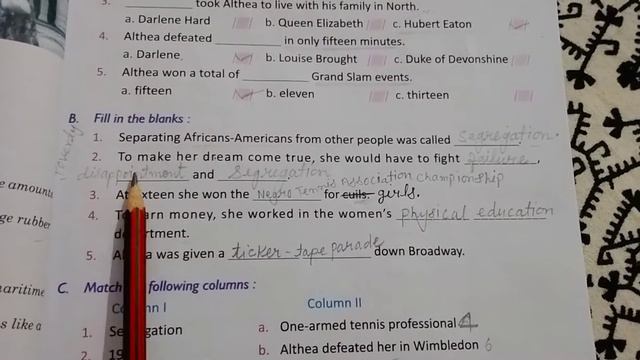 3. __________ took Althea to live with his family in North.
a. Darlene Hard b. Queen Elizabeth c. Hubert Eaton
4. Althea defeated __________ in only fifteen minutes.
a. Darlene b. Louise Brought c. Duke of Devonshire
5. Althea won a total of __________ Grand Slam events.
a. fifteen b. eleven c. thirteen
B. Fill in the blanks :
1. Separating Africans-Americans from other people was called segregation.
2. To make her dream come true, she would have to fight failure,
disappointment and Segregation
3. At sixteen she won the Negro Tennis Association Championship for cuils. girls.
4. To earn money, she worked in the women's physical education
department.
5. Althea was given a ticker-tape parade down Broadway.
C. Match following columns :
Column I Column II
1. Segregation a. One-armed tennis professional 4
2. 19 b. Althea defeated her in Wimbledon 6
e amount
ge rubber
aritime
s like a